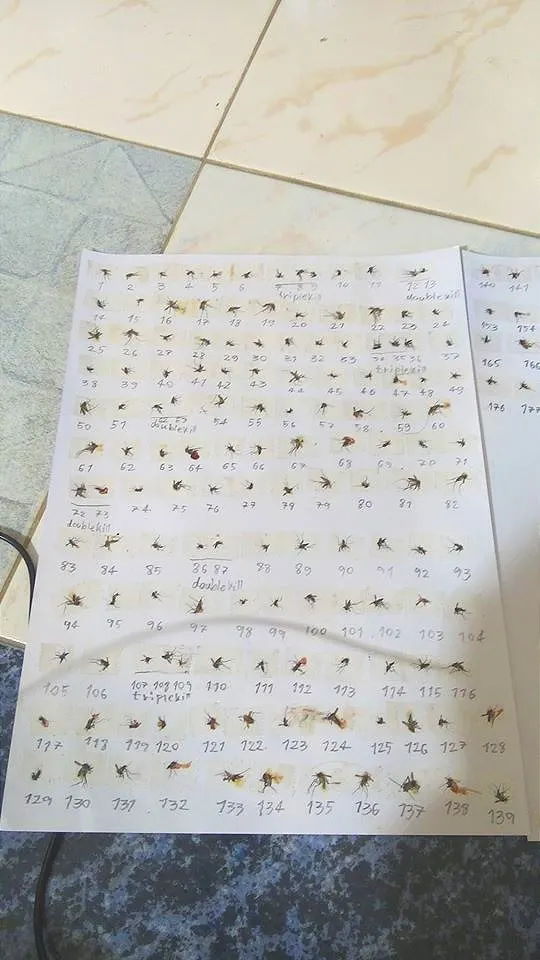 1 2 3 4 5 6 7 8 9 10 11 12 13
triplekill doublekill
14 15 16 17 18 19 20 21 22 23 24
25 26 27 28 29 30 31 32 33 34 35 36 37
triplekill
38 39 40 41 42 43 44 45 46 47 48 49
50 51 52 53 54 55 56 57 58 59 60
doublekill
61 62 63 64 65 66 67 68 69 70 71
72 73 74 75 76 77 78 79 80 81 82
doublekill
83 84 85 86 87 88 89 90 91 92 93
doublekill
94 95 96 97 98 99 100 101 102 103 104
105 106 107 108 109 110 111 112 113 114 115 116
triplekill
117 118 119 120 121 122 123 124 125 126 127 128
129 130 131 132 133 134 135 136 137 138 139
140 141
153 154
165 166
176 177